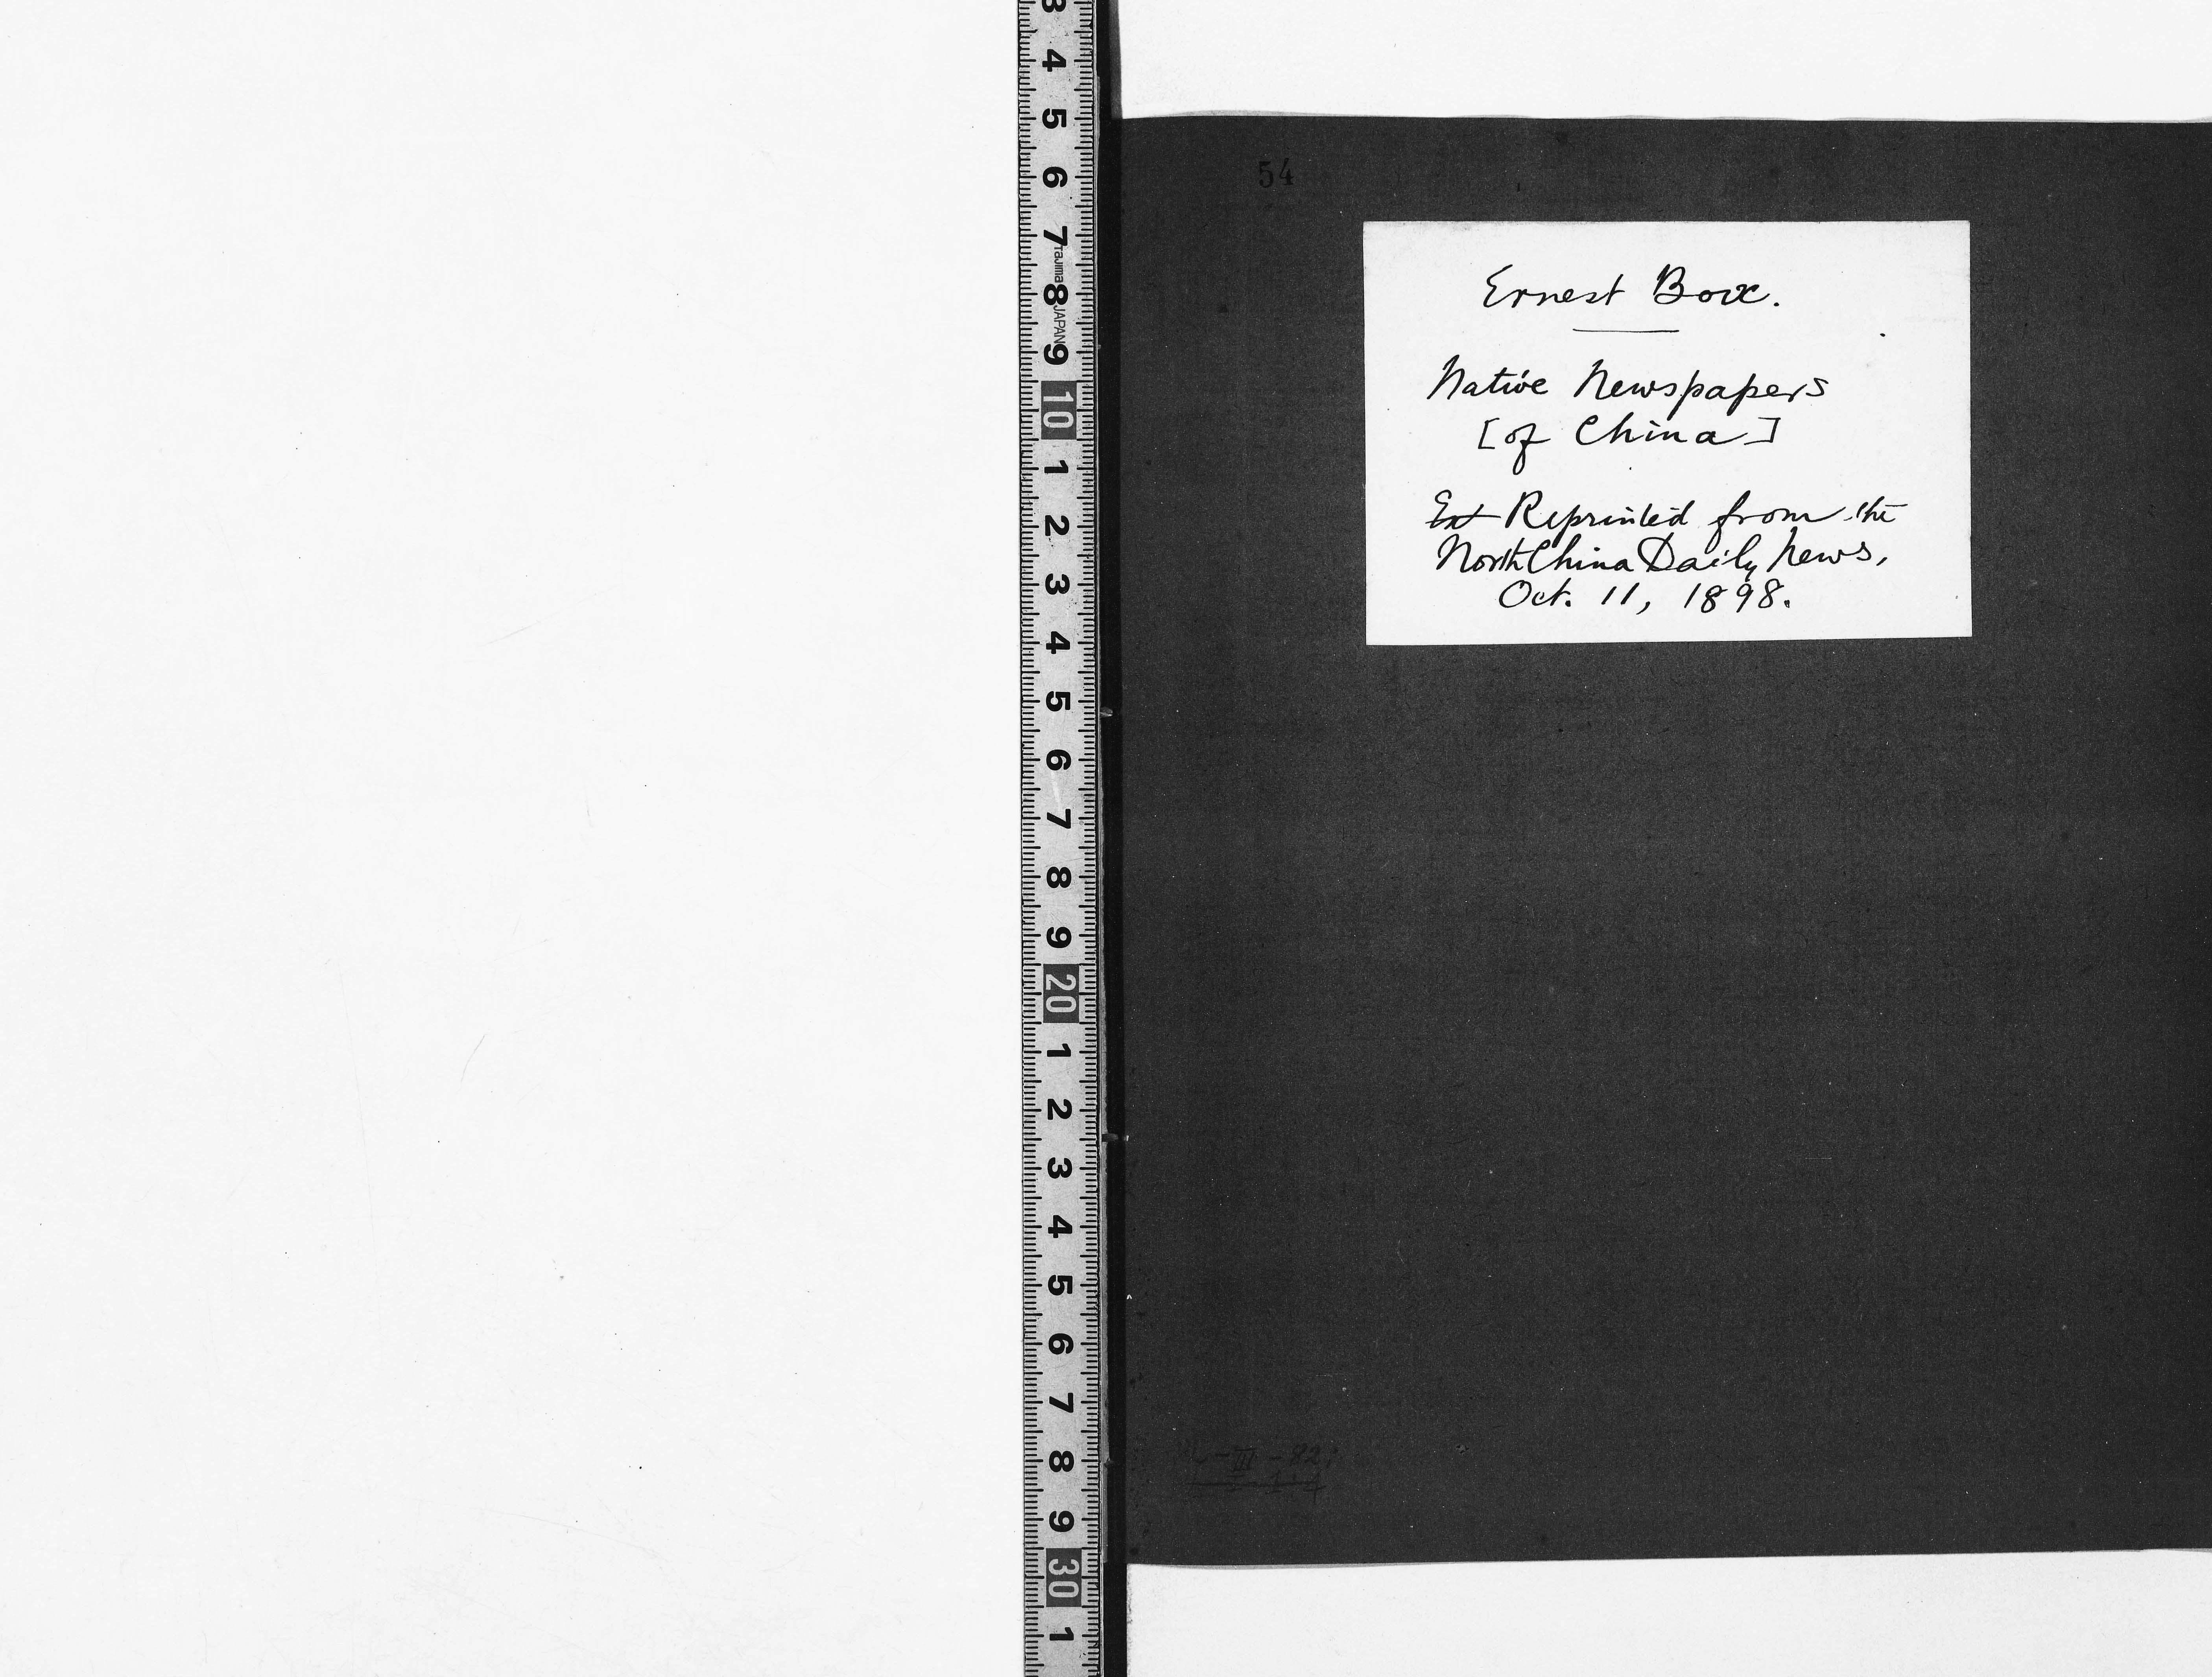 3
4
5
6
7
Tajima
8
JAPAN
9
10
1
2
3
4
5
6
7
8
9
20
1
2
3
4
5
6
7
8
9
30
1
54
Ernest Box.
Native Newspapers
[of China]
Ext Reprinted from the
North China Daily News,
Oct. 11, 1898.
-III-82